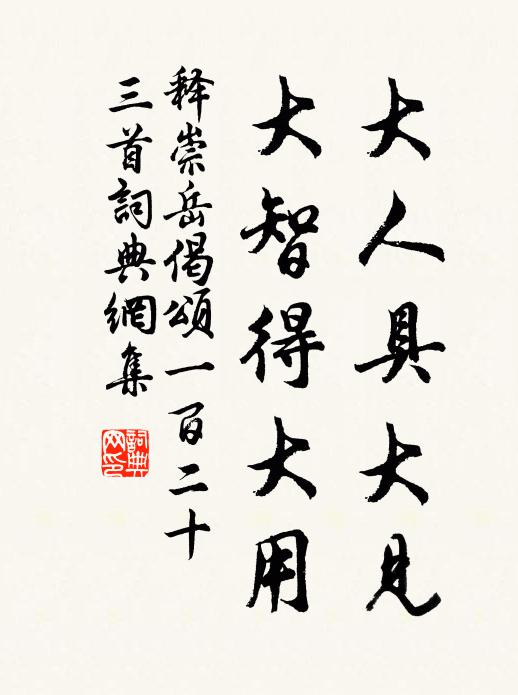 大人具大見
大智得大用
释崇岳偈頌一百二十
三首詞典網集
詞典
网印